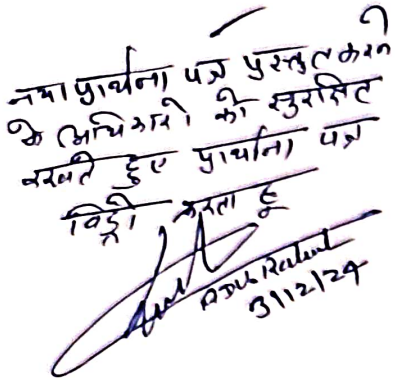 नया प्रार्थना पत्र प्रस्तुत करने
के अधिकारो को सुरक्षित
रखते हुए प्रार्थना पत्र
विड्रो करता हू
3/12/24